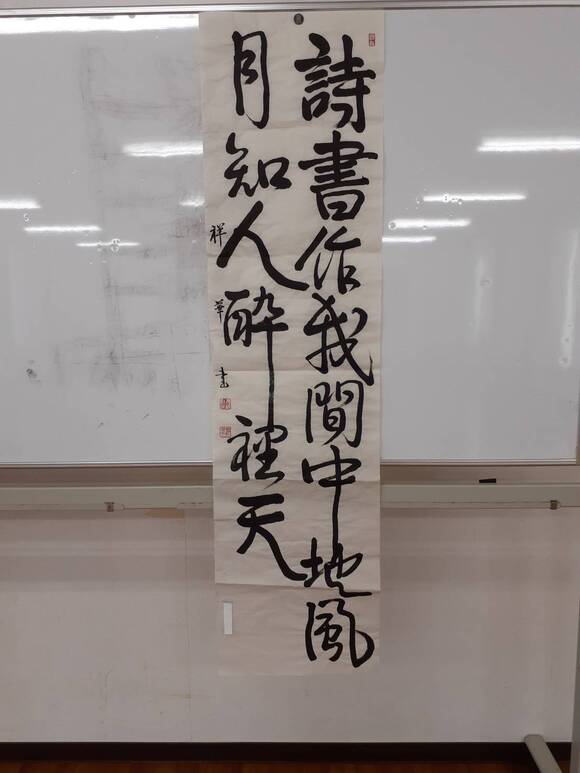 詩書作我間中地風
月知人酔裡天
祥華書